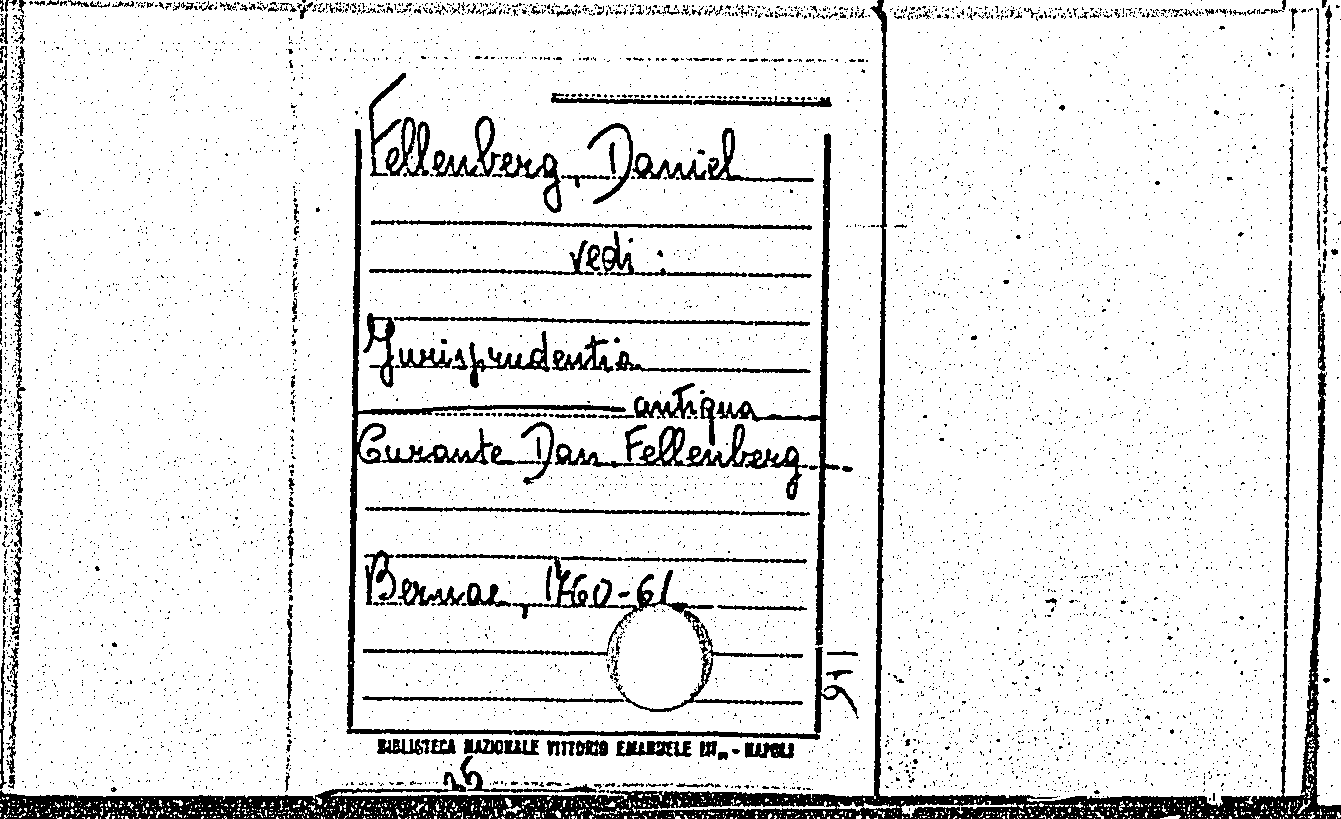 Fellenberg, Daniel
vedi :
Jurisprudentia
antiqua
Curante Dan. Fellenberg
Bernae, 1760-61
BIBLIOTECA NAZIONALE VITTORIO EMANUELE III„ - NAPOLI